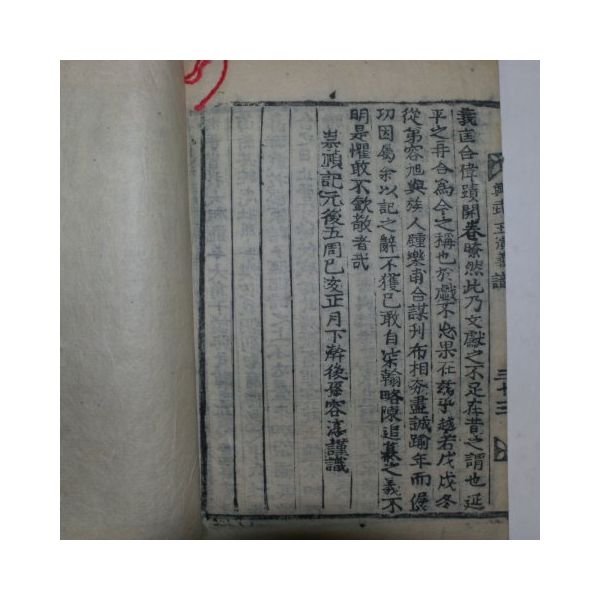 義直合偉蹟開卷瞭然此乃文獻之不足在昔之謂也延
平之再合爲今之稱也於戲不忘果在茲乎越若戊戌冬
從第容旭與族人鍾樂甫合謀刊布相夯盡誠踰年而僝
功因屬余以記之辭不獲已敢自柒翰略陳追纂之義不
明是懼敢不欽敬者哉
崇禎記元後五周己亥正月下澣後孫容淳謹識
三十三